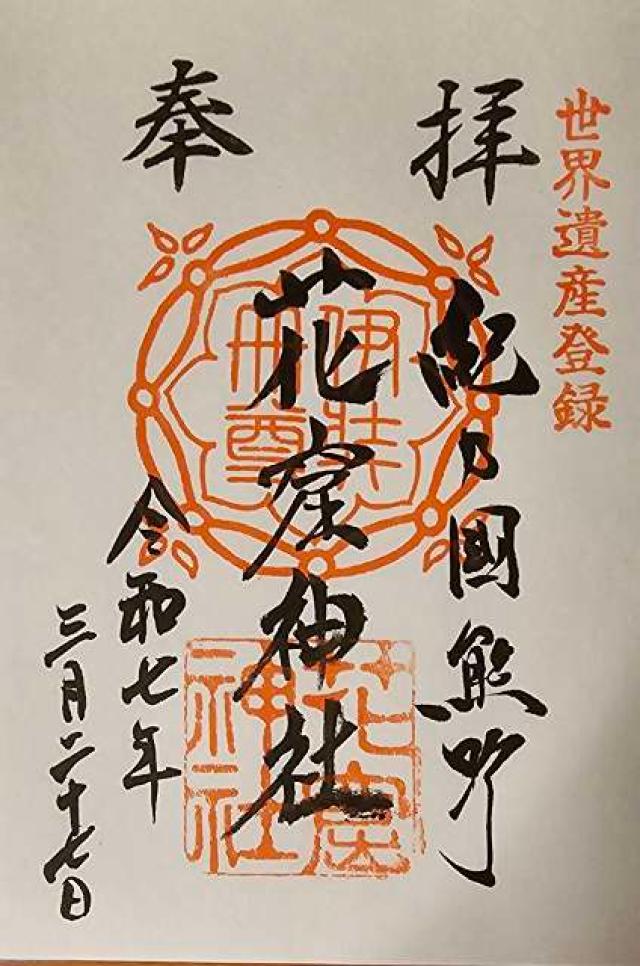 世界遺産登録
奉拝
紀乃國熊野
花窟神社
令和七年
三月二十七日
伊弉
冊尊
花窟
神社